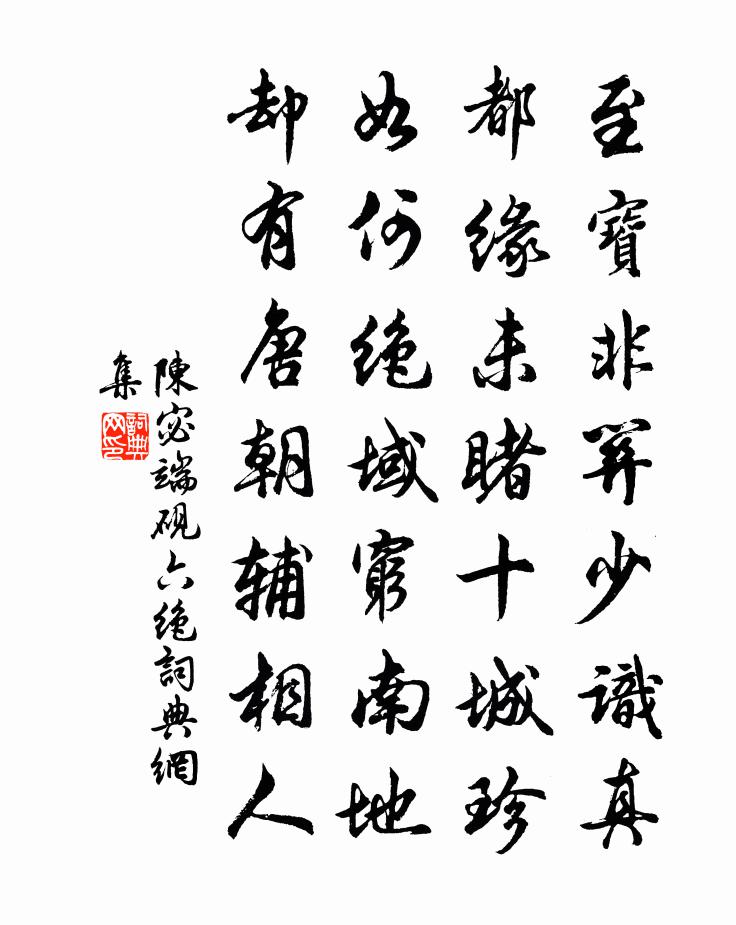 至寶非關少識真
都緣未睹十城珍
如何絕域窮南地
却有唐朝輔相人
陳宓端硯六絕詞典網
集
詞典网印